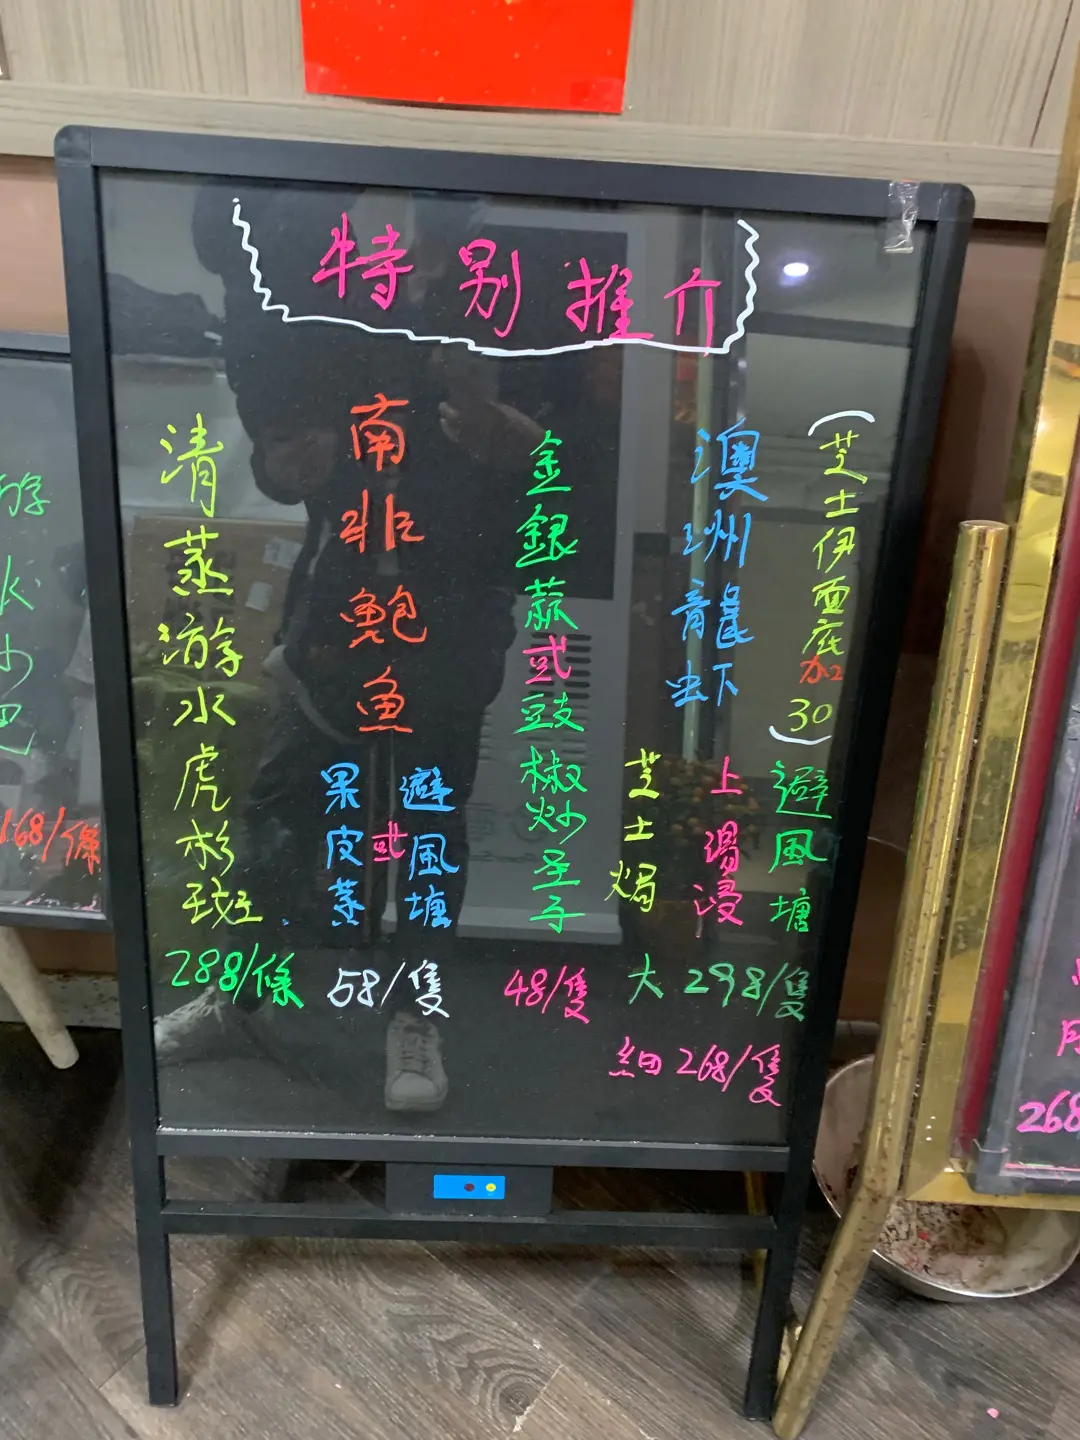 特別推介
(芝士伊面底加30)
澳洲龍虾
避風塘
上湯浸
芝士焗
大 298/隻
細 268/隻
金銀蒜或豉椒炒圣子
48/隻
南非鮑魚
避風塘
或
果皮蒸
58/隻
清蒸游水虎杉斑
288/條
168/條
268